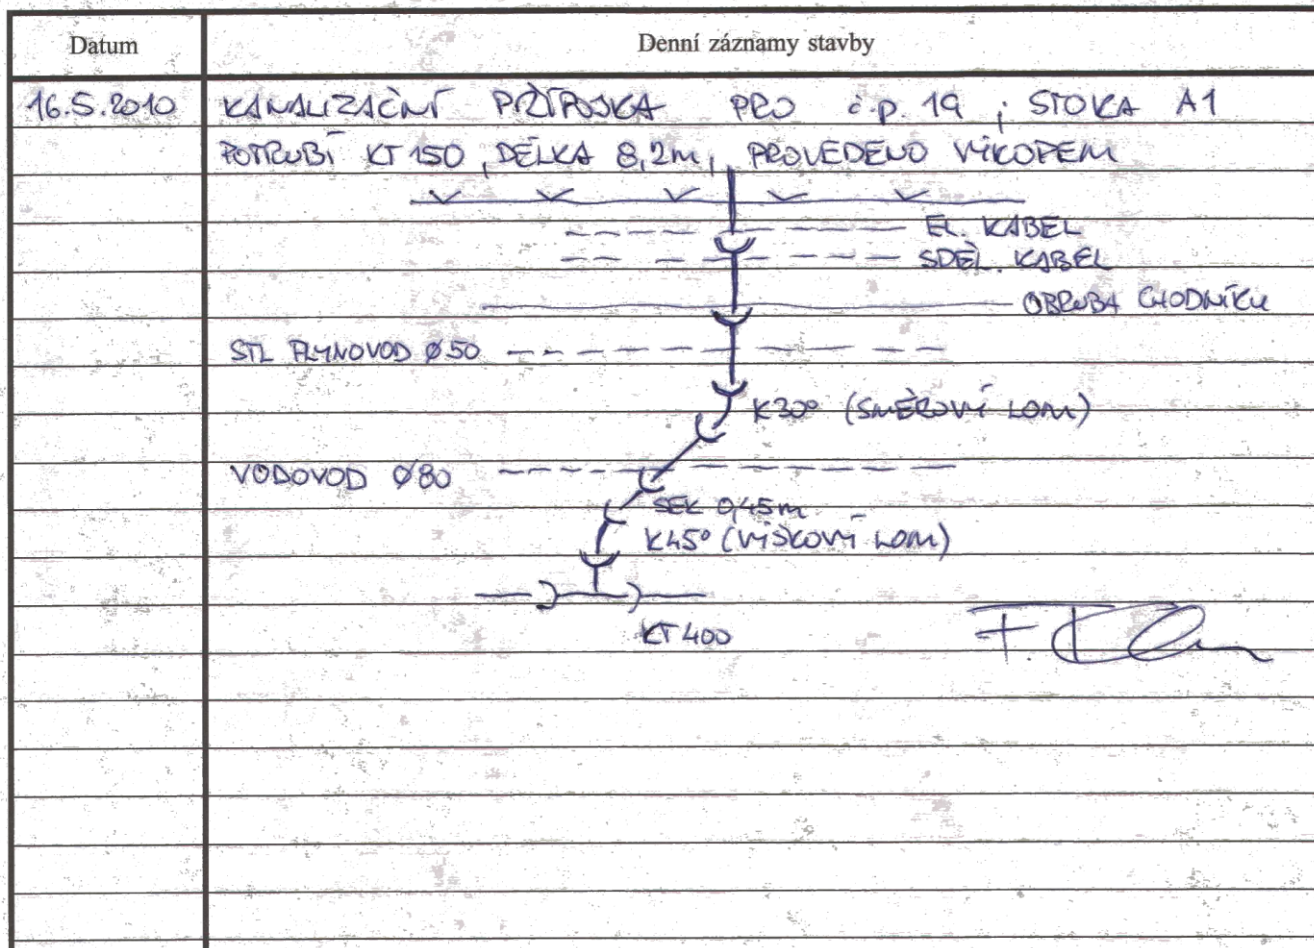 Datum
Denní záznamy stavby
16.5.2010
KANALIZAČNÍ PŘÍPOJKA PRO č.p. 19 ; STOKA A1
POTRUBÍ KT 150, DÉLKA 8,2m, PROVEDENO VÝKOPEM
EL. KABEL
SDĚL. KABEL
OBRUBA CHODNÍKU
STL PLYNOVOD Ø50
K30° (SMĚROVÝ LOM)
VODOVOD Ø80
SEK 0,45m
K45° (VÝŠKOVÝ LOM)
KT 400